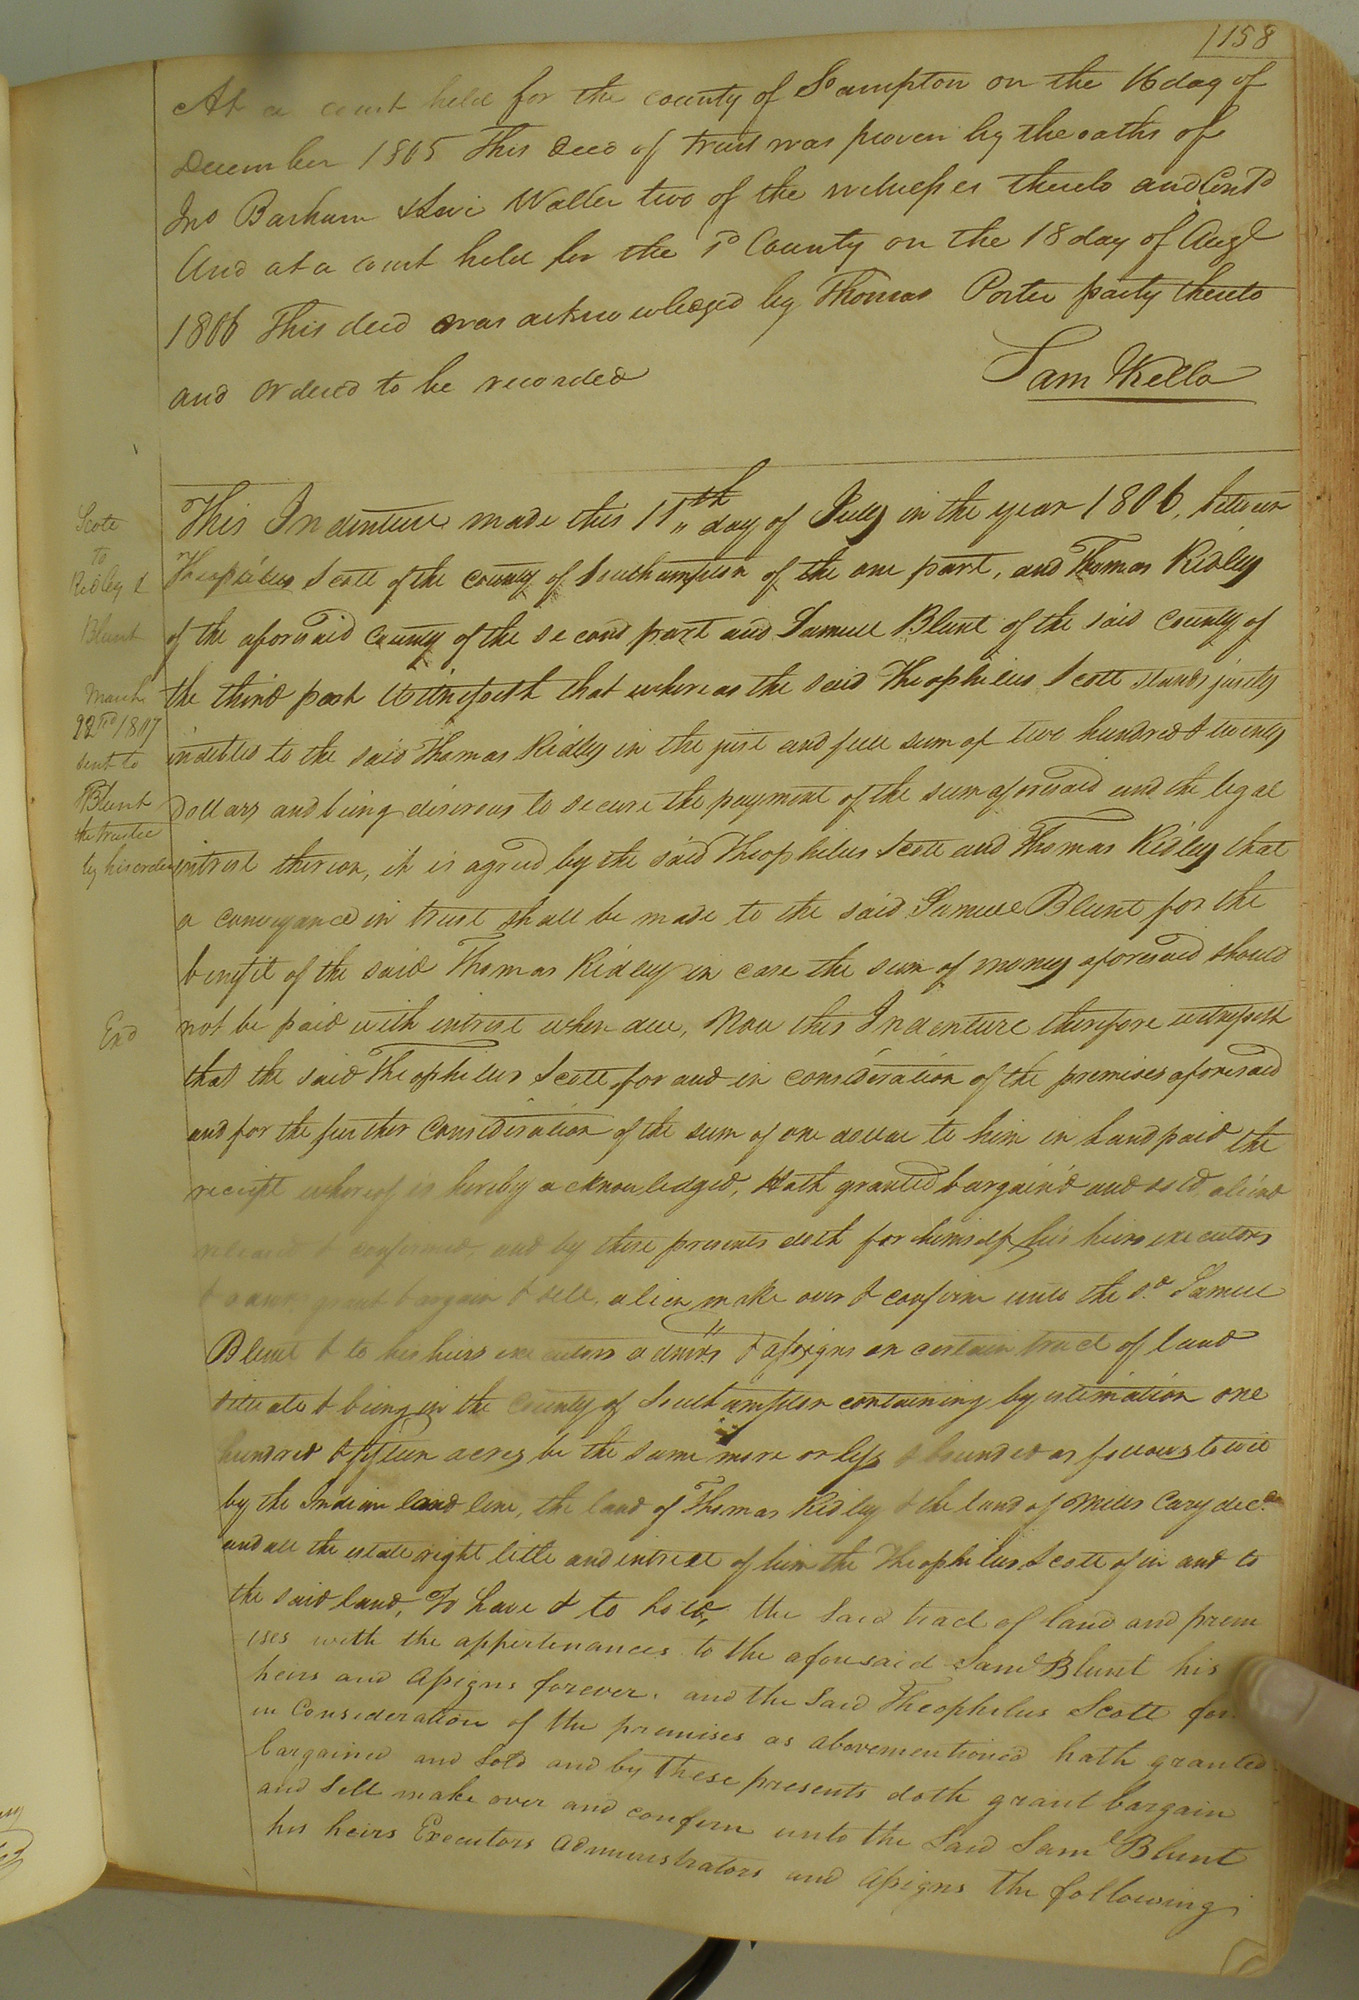 158
At a court held for the county of So ampton on the 16 day of
December 1805 This deed of trust was proven by the oaths of
Jno Barham & Levi Waller two of the witnesses thereto and Contd
And at a court held for the sd County on the 18 day of Augt
1806 This deed was acknowledged by Thomas Porter party thereto
and ordered to be recorded
Sam Kello
This Indenture made this 11th day of July in the year 1806, between
Theophilus Scott of the county of Southampton of the one part, and Thomas Ridley
of the aforesaid county of the second part and Samuel Blunt of the said county of
the third part Witnesseth that whereas the said Theophilus Scott stands justly
indebted to the said Thomas Ridley in the just and full sum of two hundred & twenty
Dollars and being disirous to secure the payment of the sum aforesaid and the legal
intrest thereon, it is agreed by the said Theophilus Scott and Thomas Ridley that
a conveyance in trust shall be made to the said Samuel Blunt for the
benefit of the said Thomas Ridley in case the sum of money aforesaid should
not be paid with intrest when due, Now this Indenture therefore witnesseth
that the said Theophilus Scott for and in consideration of the premises aforesaid
and for the further consideration of the sum of one dollar to him in hand paid the
receipt whereof is hereby acknowledged, Hath granted bargain'd and sold, aliend
released & confirmed, and by these presents doth for himself his heirs executors
& grant bargain & sell, alien make over & confirm unto the sd. Samuel
Blunt & to his heirs executors admrs & assigns on certain tract of land
situate & being in the county of Southampton containing by estimation one
hundred & fifteen acres be the same more or less & bounded as follows towit
by the Indian land line, the land of Thomas Ridley & the land of Miles Cary decd.
and all the estate right title and intrest of him the Theophilus Scott of in and to
the said land, To have & to hold, the said tract of land and prem
ises with the appertenances to the aforesaid Saml Blunt his
heirs and assigns forever. and the said Theophilus Scott for
in Consideration of the premises as abovementioned hath granted
bargained and sold and by these presents doth grant bargain
and sell make over and confirm unto the said Saml Blunt
his heirs Executors administrators and assigns the following
Scott
to
Ridley &
Blunt
March
22nd 1807
sent to
Blunt
the trustee
by his order
End